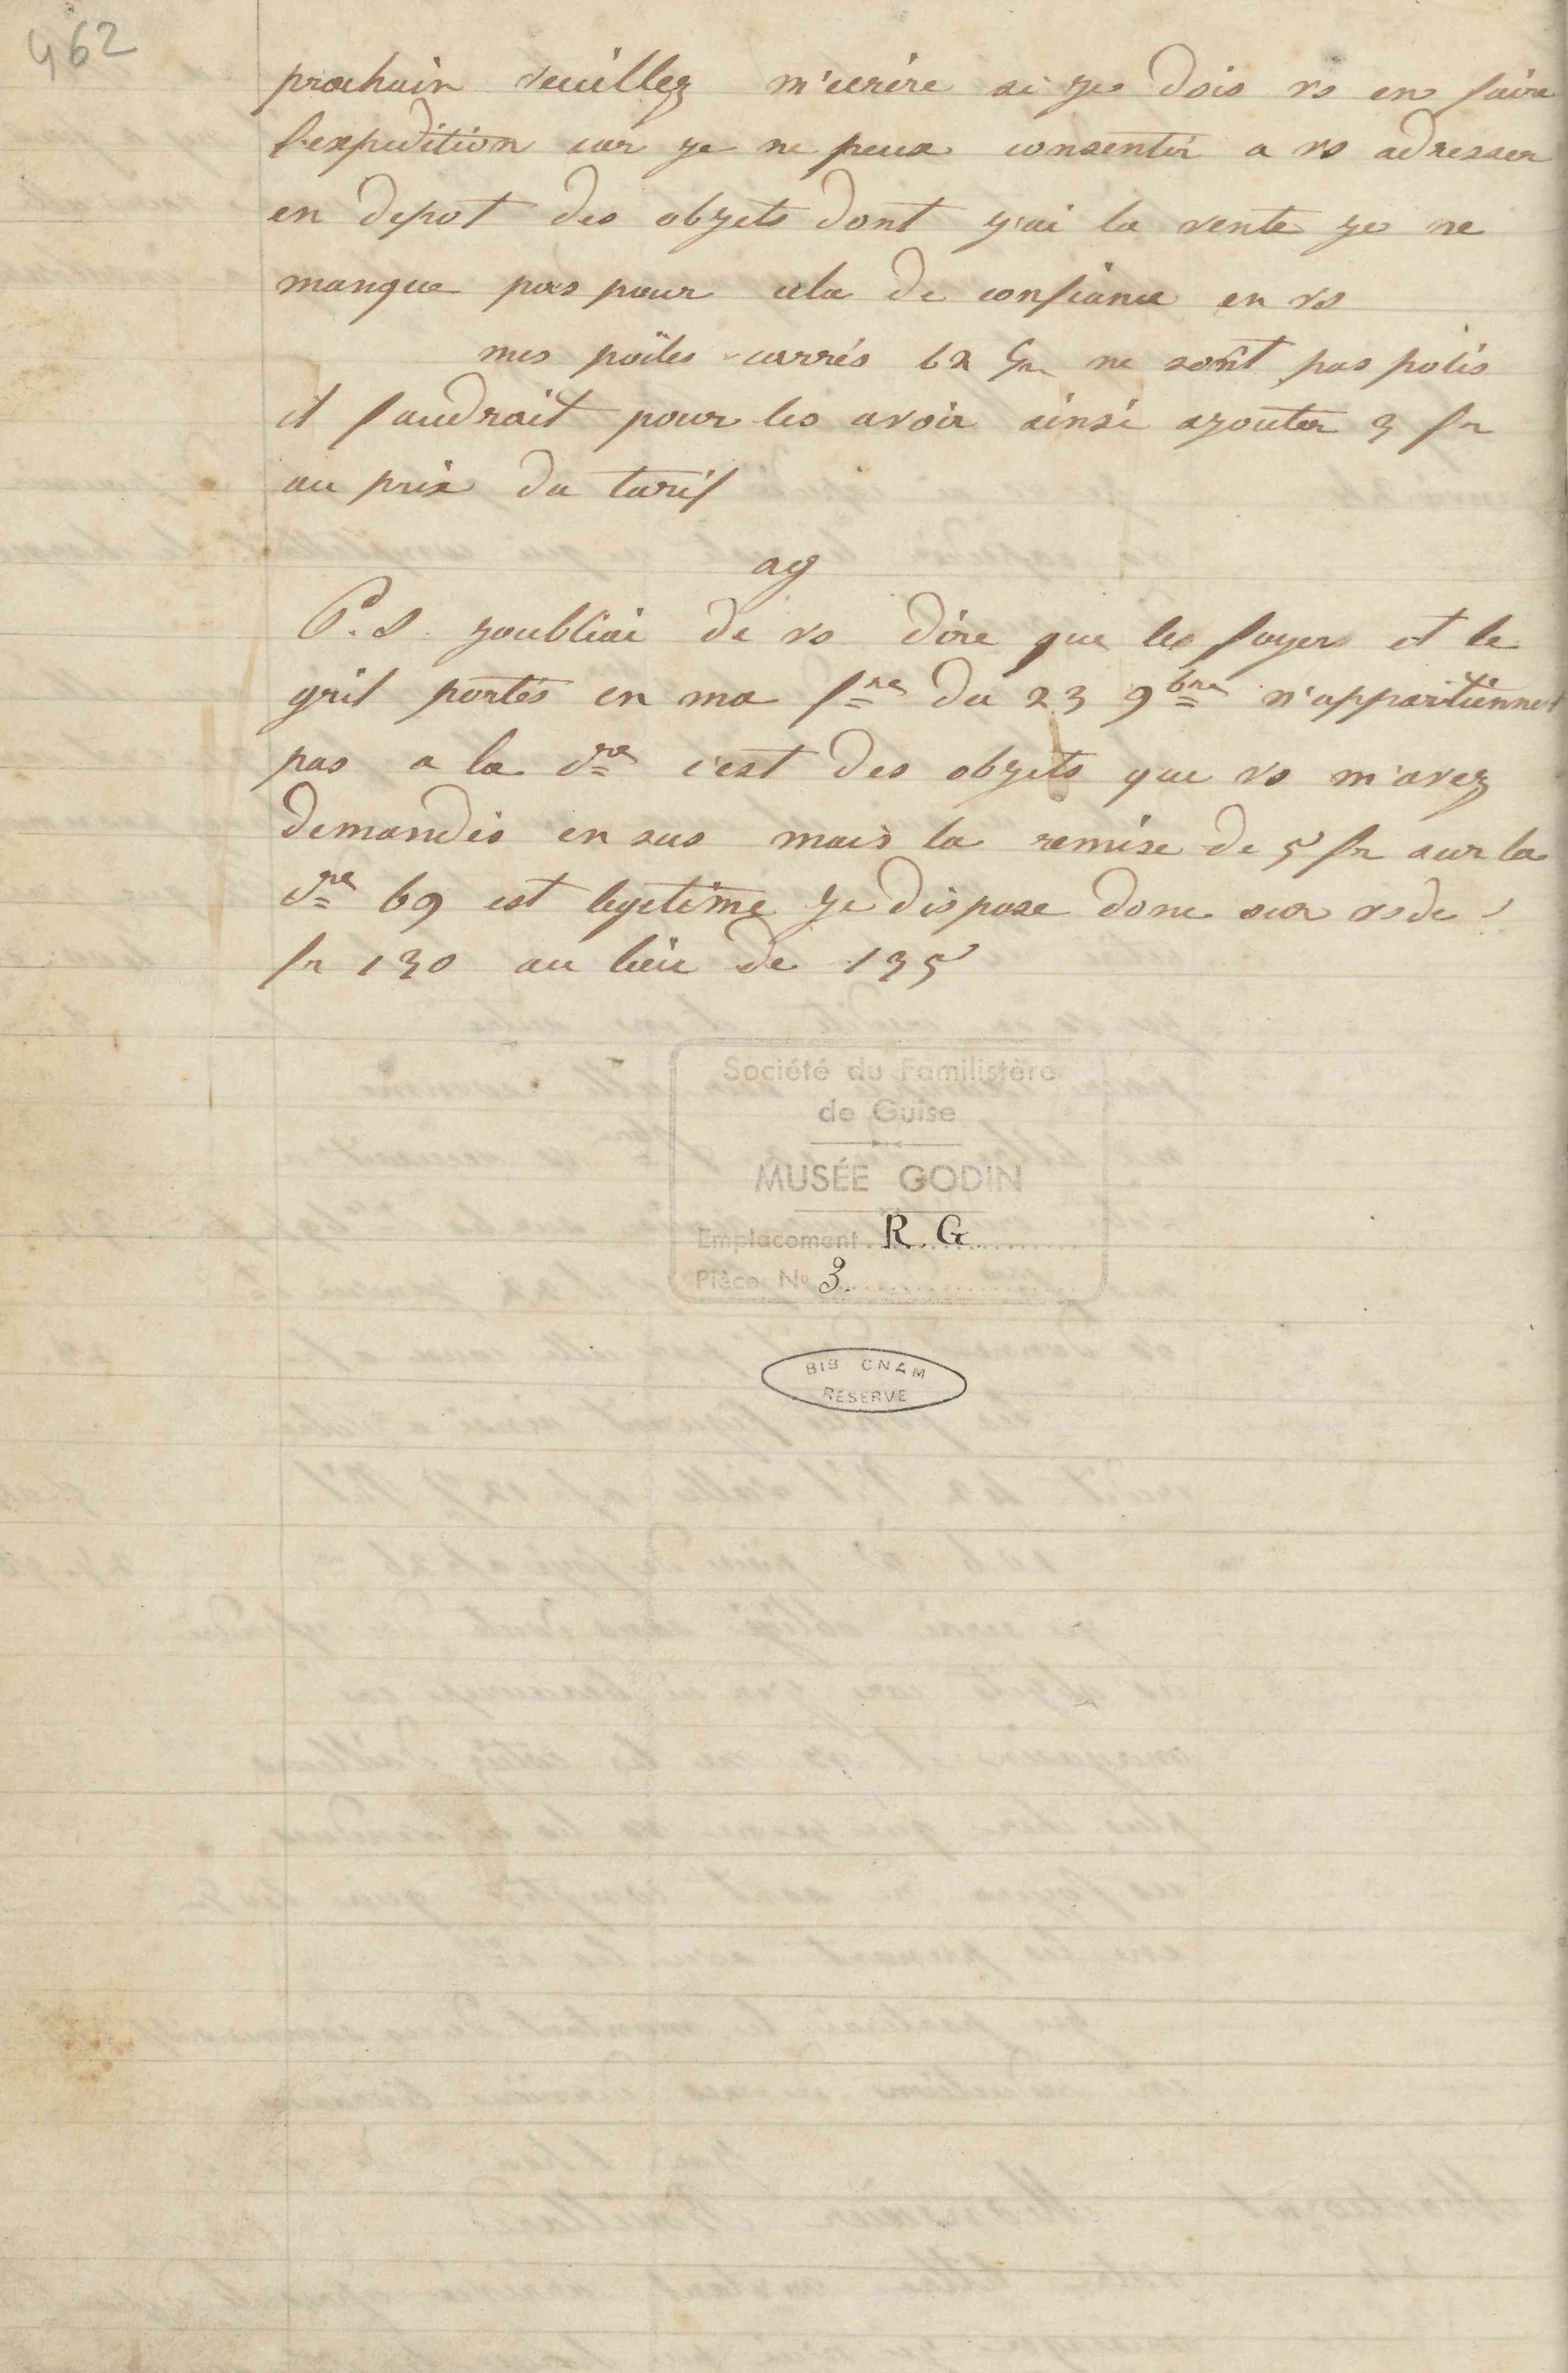 462
prochain veuillez m'ecrire si je dois vs en faire
l'expedition car je ne peux consentir a vs adresser
en depot des objets dont j'ai la vente je ne
manque pas pour cela de confiance en vs
mes poëles carrés 62 ne sont pas polis
il faudrait pour les avoir ainsi ajouter 3 fr
au prix du tarif
ag
P.S. joubliai de vs dire que les foyers et le
gril portés en ma fre du 23 9bre n'appartiennet
pas a la dre c'est des objets que vs m'avez
demandés en sus mais la remise de 5 fr sur la
dre 69 est legetime je dispose donc sur vs de
fr 130 au lieu de 135
Société du Familistère
de Guise
MUSÉE GODIN
Emplacement R. G.
Pièce No 3.
BIB CNAM
RESERVE